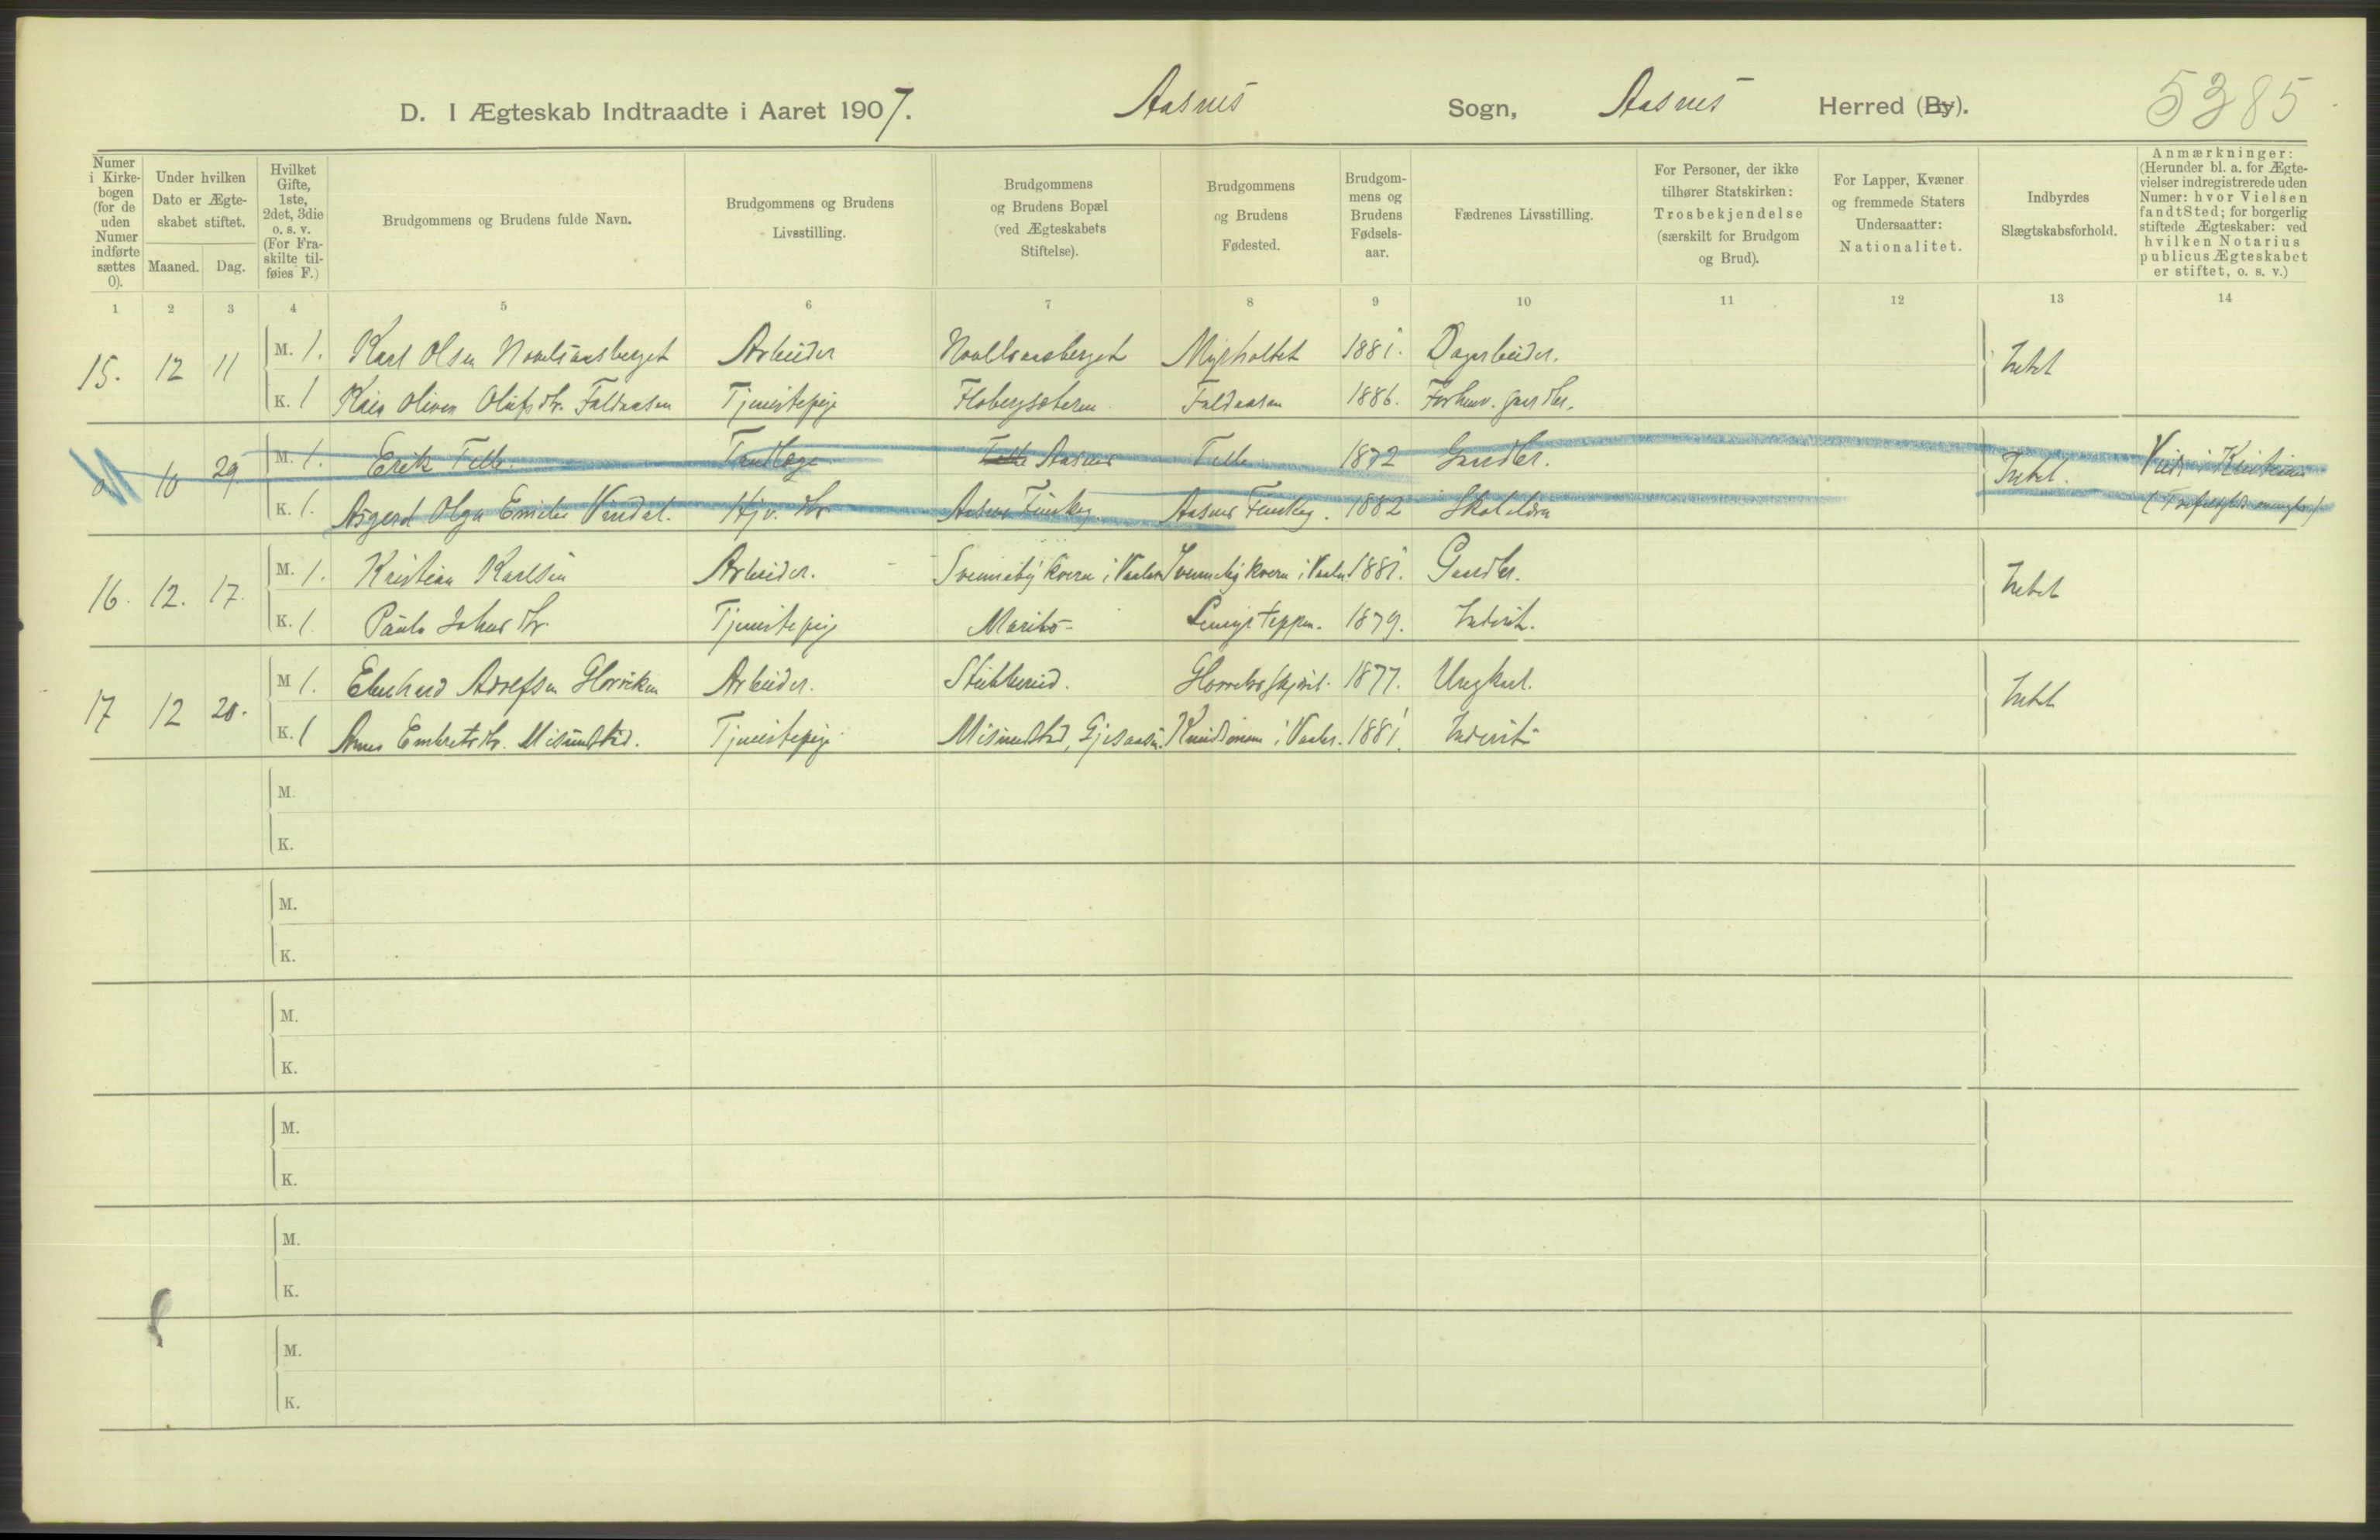 D. I Ægteskab Indtraadte i Aaret 1907. Aasnes Sogn, Aasnes Herred (By). 5385
Numer i Kirkebogen (for de uden Numer indførte sættes 0).
Under hvilken Dato er Ægteskabet stiftet.
Maaned. Dag.
Hvilket Gifte, 1ste, 2det, 3die o. s. v. (For Fraskilte tilføies F.)
Brudgommens og Brudens fulde Navn.
Brudgommens og Brudens Livsstilling.
Brudgommens og Brudens Bopæl (ved Ægteskabets Stiftelse).
Brudgommens og Brudens Fødested.
Brudgommens og Brudens Fødselsaar.
Fædrenes Livsstilling.
For Personer, der ikke tilhører Statskirken: Trosbekjendelse (særskilt for Brudgom og Brud).
For Lapper, Kvæner og fremmede Staters Undersaatter: Nationalitet.
Indbyrdes Slægtskabsforhold.
Anmærkninger: (Herunder bl. a. for Ægtevielser indregistrerede uden Numer: hvor Vielsen fandt Sted; for borgerlig stiftede Ægteskaber: ved hvilken Notarius publicus Ægteskabet er stiftet, o. s. v.)
1 2 3 4 5 6 7 8 9 10 11 12 13 14
15. 12 11 M. 1. Karl Olsen Arbeider Myrholtet 1881. Dagarbeider. Intet
K. 1 Oliver Olufsdtr. Faldaasen Tjenestepige Flobergsæteren Faldaasen 1886. Forhenv. gaardbr.
0 10 29 M. 1. Erik Telle. Tandlæge Aasnes Telle 1872 Gaardbr. Intet. Viet i Kristiania
K. 1. Aasgerd Olga Emilie Vindal. Hjv. dtr. Aasnes Finskog Aasnes Finskog. 1882 Skolelærer
16. 12. 17. M. 1. Kristian Karlsen Arbeider. Svenneby kvern i Vaaler Svenneby kvern i Vaaler 1881. Gaardbr. Intet
K. 1 Paula Johansdtr. Tjenestepige 1879. Inderst.
17 12 20. M 1. Eberhard Adolfsen Arbeider. Stubberud. 1877. Ungkarl. Intet
K. 1 Embretsdtr. Misundstad. Tjenestepige Misundstad, Gjesaasen. i Vaaler. 1881. Inderst
M.
K.
M.
K.
M.
K.
M.
K.
M.
K.
M.
K.